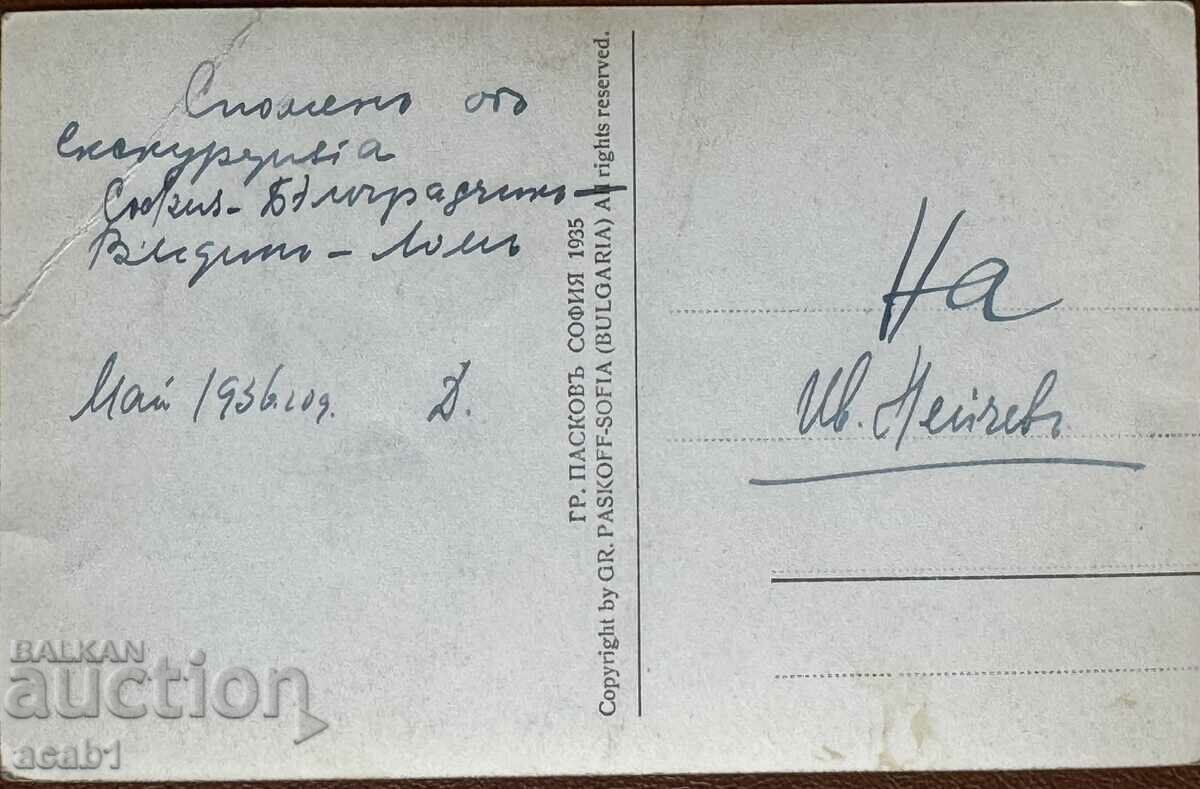 Споменъ отъ
Екскурзията
София - Бѣлоградчикъ -
Видинъ - Ломъ
Май 1936 год. Д.
ГР. ПАСКОВЪ СОФИЯ 1935
Copyright by GR. PASKOFF-SOFIA (BULGARIA) All rights reserved.
На
Ив. Нейчевъ
BALKAN
auction
acab1